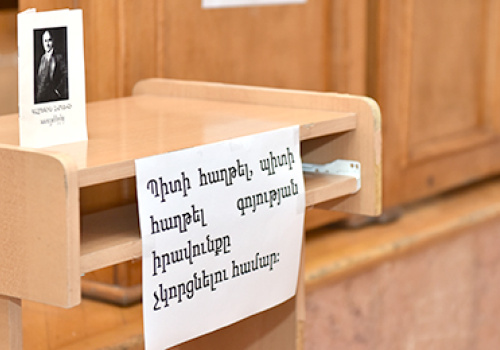 Պիտի հաղթել, պիտի
հաղթել գոյության
իրավունքը
չկորցնելու համար: